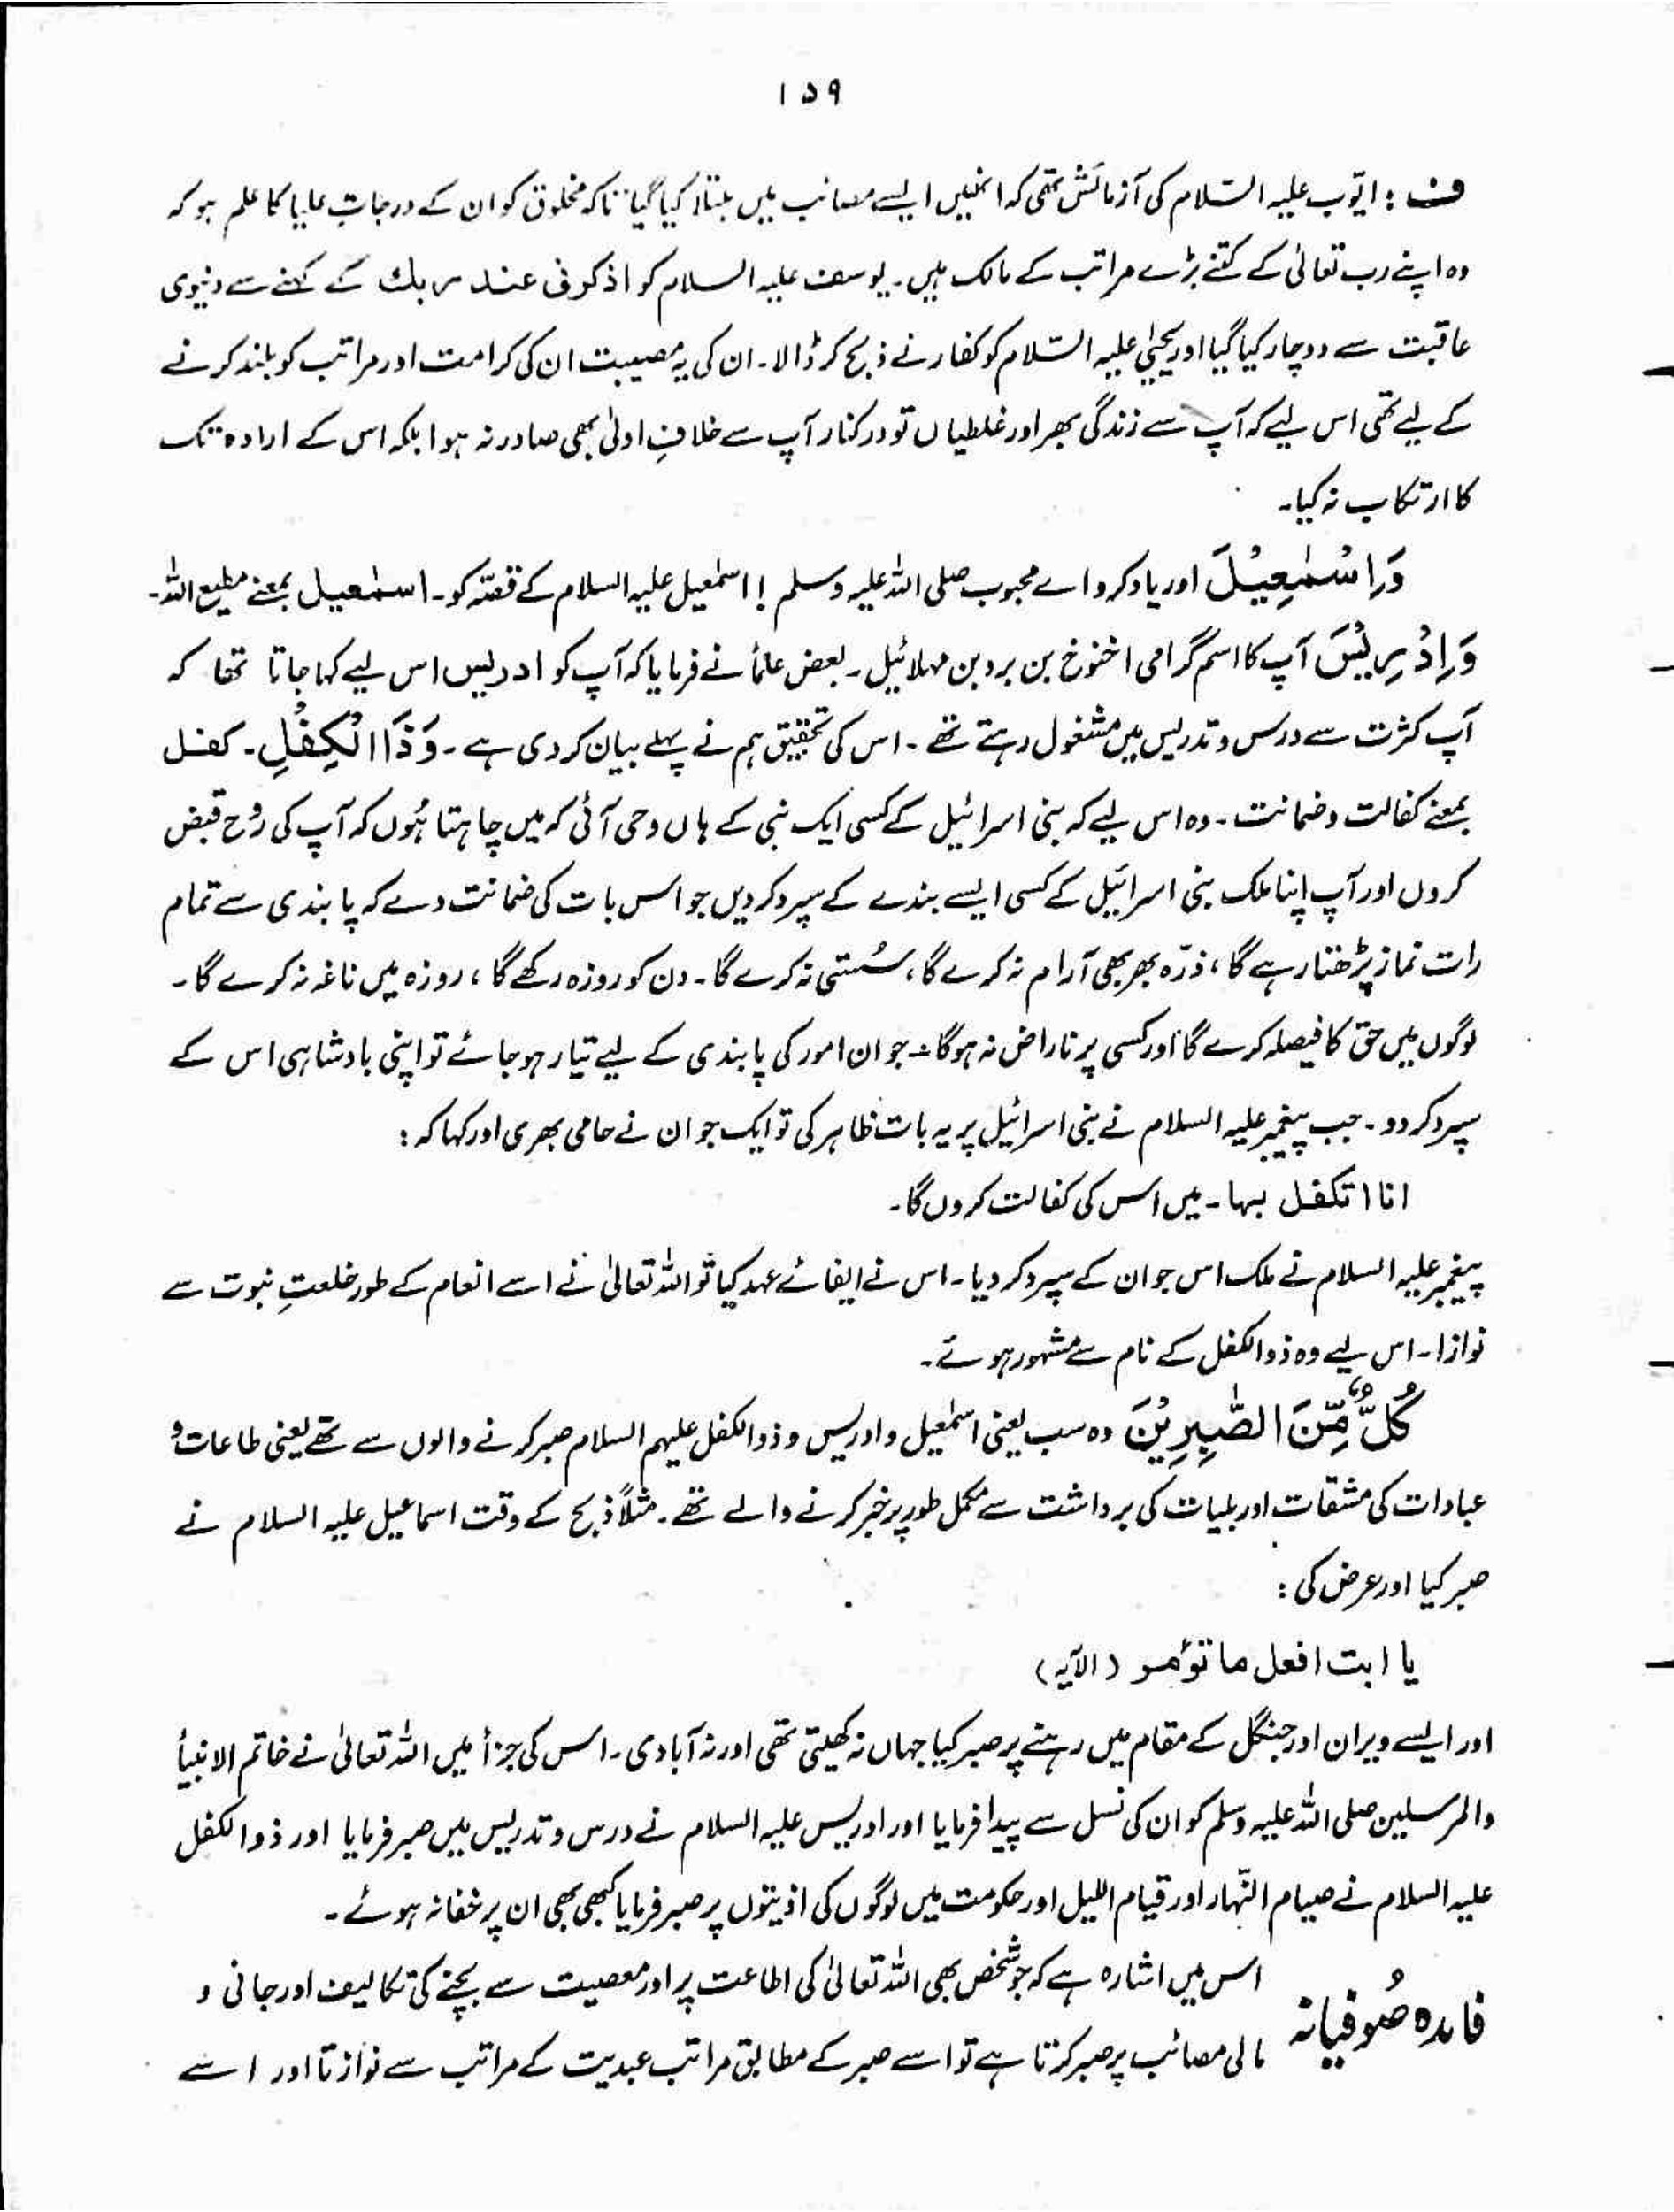 ۱۵۹
ف : ایّوب علیہ السّلام کی آزمائش تھی کہ انہیں ایسے مصائب میں مبتلا کیا گیا تاکہ مخلوق کو ان کے درجاتِ علیا کا علم ہو کہ
وہ اپنے رب تعالیٰ کے کتنے بڑے مراتب کے مالک ہیں۔ یوسف علیہ السلام کو اذکرنی عند ربك کے کہنے سے دنیوی
عاقبت سے دوچار کیا گیا اور یحییٰ علیہ السّلام کو کفار نے ذبح کر ڈالا۔ ان کی یہ مصیبت ان کی کرامت اور مراتب کو بلند کرنے
کے لیے تھی اس لیے کہ آپ سے زندگی بھر اور غلطیاں تو درکنار آپ سے خلافِ اولیٰ بھی صادر نہ ہوا بلکہ اس کے ارادہ تک
کا ارتکاب نہ کیا۔
وَاِسْمٰعِیْلَ اور یاد کرو اے محبوب صلی اللہ علیہ وسلم ! اسمٰعیل علیہ السلام کے قصّہ کو۔ اسمٰعیل بمعنے مطیع اللہ۔
وَاِدْرِیْسَ آپ کا اسم گرامی اخنوخ بن برد بن مہلائیل۔ بعض علمأ نے فرمایا کہ آپ کو ادریس اس لیے کہا جاتا تھا کہ
آپ کثرت سے درس و تدریس میں مشغول رہتے تھے۔ اس کی تحقیق ہم نے پہلے بیان کر دی ہے۔ وَذَا الْكِفْلِ۔ کفل
بمعنے کفالت و ضمانت۔ وہ اس لیے کہ بنی اسرائیل کے کسی ایک نبی کے ہاں وحی آئی کہ میں چاہتا ہُوں کہ آپ کی رُوح قبض
کروں اور آپ اپنا ملک بنی اسرائیل کے کسی ایسے بندے کے سپرد کر دیں جو اس بات کی ضمانت دے کہ پابندی سے تمام
رات نماز پڑھتا رہے گا، ذرّہ بھر بھی آرام نہ کرے گا، سُستی نہ کرے گا۔ دن کو روزہ رکھے گا، روزہ میں ناغہ نہ کرے گا۔
لوگوں میں حق کا فیصلہ کرے گا اور کسی پر ناراض نہ ہوگا۔ جو ان امور کی پابندی کے لیے تیار ہو جائے تو اپنی بادشاہی اس کے
سپرد کر دو۔ جب پیغمبر علیہ السلام نے بنی اسرائیل پر یہ بات ظاہر کی تو ایک جوان نے حامی بھری اور کہا کہ :
انا اتکفل بہا۔ میں اس کی کفالت کروں گا۔
پیغمبر علیہ السلام نے ملک اس جوان کے سپرد کر دیا۔ اس نے ایفائے عہد کیا تو اللہ تعالیٰ نے اسے انعام کے طور خلعتِ نبوت سے
نوازا۔ اس لیے وہ ذوالکفل کے نام سے مشہور ہوئے۔
كُلٌّ مِّنَ الصّٰبِرِیْنَ وہ سب یعنی اسمٰعیل و ادریس و ذوالکفل علیہم السلام صبر کرنے والوں سے تھے یعنی طاعات و
عبادات کی مشقات اور بلیات کی برداشت سے مکمل طور پر خبر کرنے والے تھے۔ مثلاً ذبح کے وقت اسماعیل علیہ السلام نے
صبر کیا اور عرض کی :
یا ابت افعل ما تؤمر (الآیہ)
اور ایسے ویران اور جنگل کے مقام میں رہنے پر صبر کیا جہاں نہ کھیتی تھی اور نہ آبادی۔ اس کی جزأ میں اللہ تعالیٰ نے خاتم الانبیأ
والمرسلین صلی اللہ علیہ وسلم کو ان کی نسل سے پیدا فرمایا اور ادریس علیہ السلام نے درس و تدریس میں صبر فرمایا اور ذوالکفل
علیہ السلام نے صیام النّہار اور قیام اللیل اور حکومت میں لوگوں کی اذیتوں پر صبر فرمایا کبھی بھی ان پر خفا نہ ہوئے۔
فائدہ صُوفیانہ اس میں اشارہ ہے کہ جو شخص بھی اللہ تعالیٰ کی اطاعت پر اور معصیت سے بچنے کی تکالیف اور جانی و
مالی مصائب پر صبر کرتا ہے تو اسے صبر کے مطابق مراتب عبدیت کے مراتب سے نوازتا اور اسے